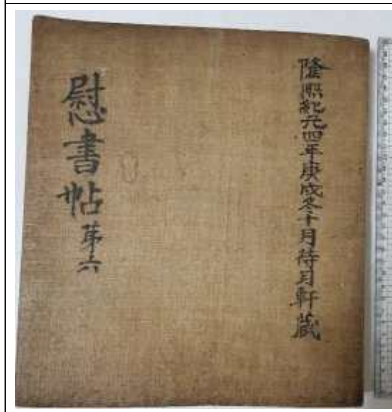 隆熙紀元四年庚戌冬十月待月軒藏
慰書帖 第六